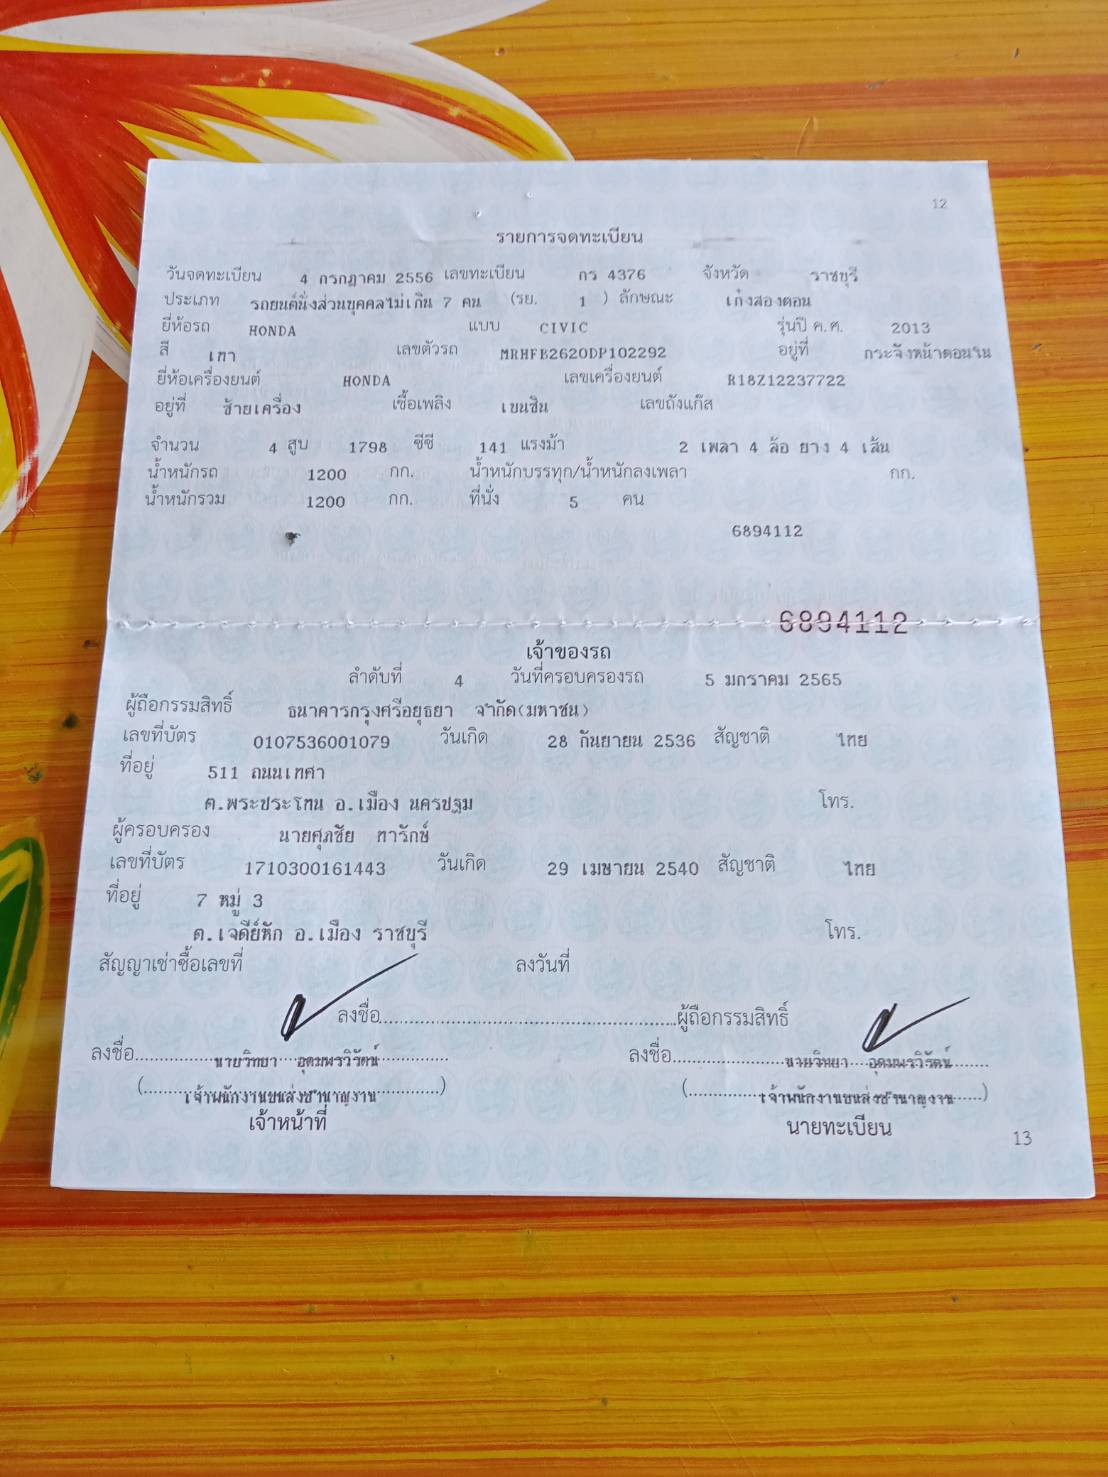 12
รายการจดทะเบียน
วันจดทะเบียน 4 กรกฎาคม 2556 เลขทะเบียน กร 4376 จังหวัด ราชบุรี
ประเภท รถยนต์นั่งส่วนบุคคลไม่เกิน 7 คน (รย. 1 ) ลักษณะ เก๋งสองตอน
ยี่ห้อรถ HONDA แบบ CIVIC รุ่นปี ค.ศ. 2013
สี เทา เลขตัวรถ MRHFB2620DP102292 อยู่ที่ กระจังหน้าตอนใน
ยี่ห้อเครื่องยนต์ HONDA เลขเครื่องยนต์ R18Z12237722
อยู่ที่ ซ้ายเครื่อง เชื้อเพลิง เบนซิน เลขถังแก๊ส
จำนวน 4 สูบ 1798 ซีซี 141 แรงม้า 2 เพลา 4 ล้อ ยาง 4 เส้น
น้ำหนักรถ 1200 กก. น้ำหนักบรรทุก/น้ำหนักลงเพลา กก.
น้ำหนักรวม 1200 กก. ที่นั่ง 5 คน
6894112
6894112
เจ้าของรถ
ลำดับที่ 4 วันที่ครอบครองรถ 5 มกราคม 2565
ผู้ถือกรรมสิทธิ์ ธนาคารกรุงศรีอยุธยา จำกัด(มหาชน)
เลขที่บัตร 0107536001079 วันเกิด 28 กันยายน 2536 สัญชาติ ไทย
ที่อยู่ 511 ถนนเทศา
ต.พระประโทน อ.เมือง นครปฐม โทร.
ผู้ครอบครอง นายศุภชัย ทารักษ์
เลขที่บัตร 1710300161443 วันเกิด 29 เมษายน 2540 สัญชาติ ไทย
ที่อยู่ 7 หมู่ 3
ต.เจดีย์หัก อ.เมือง ราชบุรี โทร.
สัญญาเช่าซื้อเลขที่ ลงวันที่
ลงชื่อ..............................ผู้ถือกรรมสิทธิ์
ลงชื่อ..........นายวิทยา อุดมพรวิรัตน์.......... ลงชื่อ..........นายวิทยา อุดมพรวิรัตน์..........
(.....เจ้าพนักงานขนส่งชำนาญงาน.....) (.....เจ้าพนักงานขนส่งชำนาญงาน.....)
เจ้าหน้าที่ นายทะเบียน
13